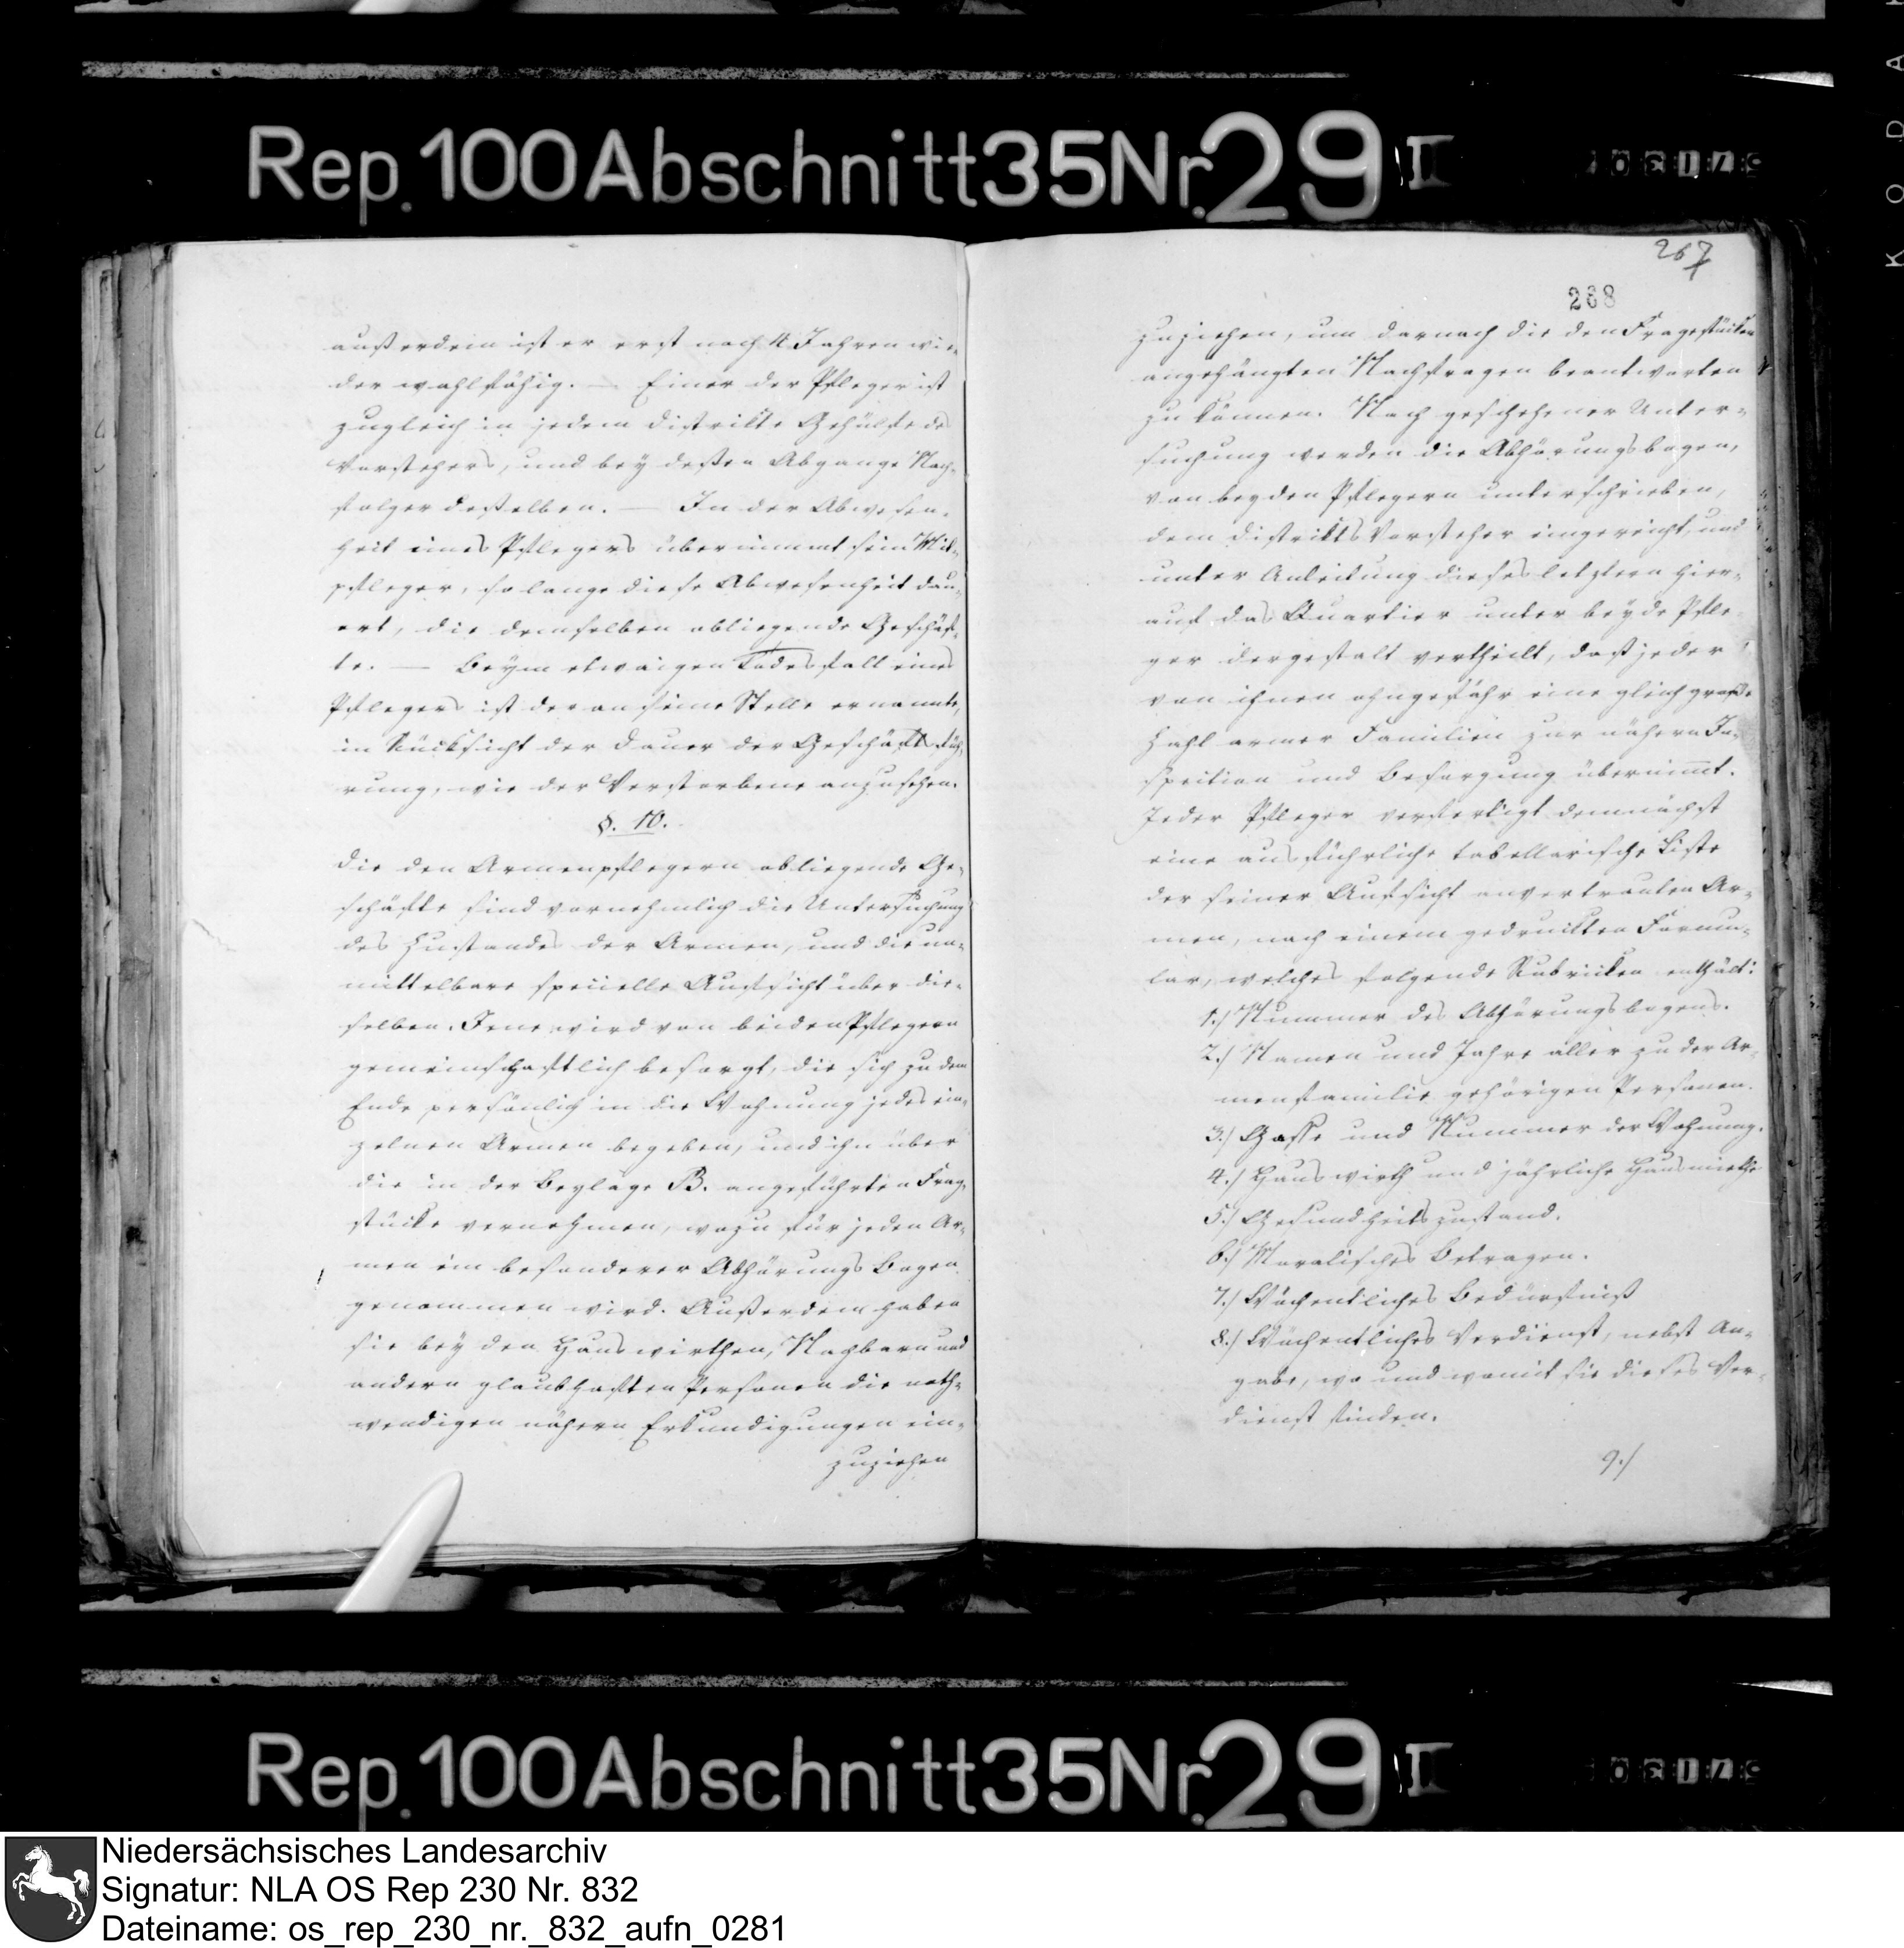 Rep. 100 Abschnitt 35 Nr. 29 I
KODAK
außerdem ist er erst nach 4 Jahren wie-
der wahlfähig. — Einer der Pfleger ist
zugleich in jedem Distrikte Gehülfe des
Vorstehers, und bey deßen Abgange Nach-
folger deßelben. — In der Abwesen-
heit eines Pflegers übernimmt sein Mit-
pfleger, so lange diese Abwesenheit dau-
ert, die demselben obliegende Geschäf-
te. — Beym etwaigen Todesfall eines
Pflegers ist der an seine Stelle ernannte,
in Rücksicht der Dauer der Geschäftsfüh-
rung, wie der Verstorbene anzusehen.
§. 10.
Die den Armenpflegern obliegende Ge-
schäfte sind vornehmlich die Untersuchung
des Zustandes der Armen, und die un-
mittelbare specielle Aufsicht über die-
selben. Jene wird von beiden Pflegern
gemeinschaftlich besorgt, die sich zu dem
Ende persönlich in die Wohnung jedes ein-
zelnen Armen begeben, und ihn über
die in der Beylage B. angeführten Frag-
stücke vernehmen, wozu für jeden Ar-
men ein besonderer Abhörungs Bogen
genommen wird. Außerdem haben
sie bey den Hauswirthen, Nachbarn und
andern glaubhaften Personen die noth-
wendigen nähern Erkundigungen ein-
zuziehen
267
268
zuziehen, um darnach die den Fragestücken
angehängten Nachfragen beantworten
zu können. Nach geschehener Unter-
suchung werden die Abhörungsbogen,
von beyden Pflegern unterschrieben,
dem Distrikts Vorsteher eingereicht, und
unter Anleitung dieses letztern hier-
auf das Quartier unter beyde Pfle-
ger dergestalt vertheilt, daß jeder
von ihnen ohngefähr eine gleich große
Zahl armer Familien zur nähern In-
spection und Besorgung übernimmt.
Jeder Pfleger verfertigt demnächst
eine ausführliche tabellarische Liste
der seiner Aufsicht anvertrauten Ar-
men, nach einem gedruckten Formu-
lar, welches folgende Rubricken enthält:
1.) Nummer des Abhörungsbogens.
2.) Namen und Jahre aller zu der Ar-
menfamilie gehörigen Personen.
3.) Gasse und Nummer der Wohnung.
4.) Hauswirth und jährliche Hausmiethe
5.) Gesundheitszustand.
6.) Moralisches Betragen.
7.) Wöchentliches Bedürfniß
8.) Wöchentliches Verdienst, nebst An-
gabe, wo und womit sie dieses Ver-
dienst finden.
9.)
Rep. 100 Abschnitt 35 Nr. 29 I
Niedersächsisches Landesarchiv
Signatur: NLA OS Rep 230 Nr. 832
Dateiname: os_rep_230_nr._832_aufn_0281